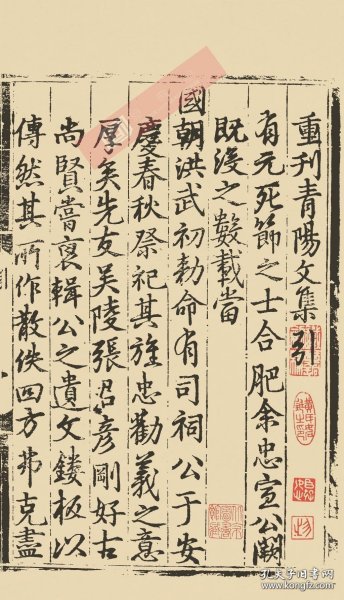 重刊青陽文集引
有元死節之士合肥余忠宣公闕
既沒之數載當
國朝洪武初勑命有司祠公于安
慶春秋祭祀其旌忠勸義之意
厚矣先友吴陵張君彥剛好古
尚賢嘗裒輯公之遺文鏤板以
傳然其所作散佚四方弗克盡